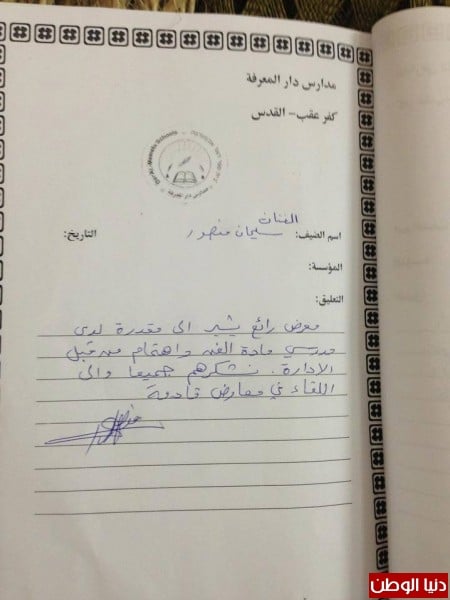 مدارس دار المعرفة
كفر عقب - القدس
الفنان
اسم الضيف: سليمان منصور التاريخ:
المؤسسة:
التعليق:
معرض رائع يشير الى مقدرة لدى
مدرسي مادة الفن واهتمام من قبل
الادارة. نشكرهم جميعا والى
اللقاء في معارض قادمة
دنيا الوطن